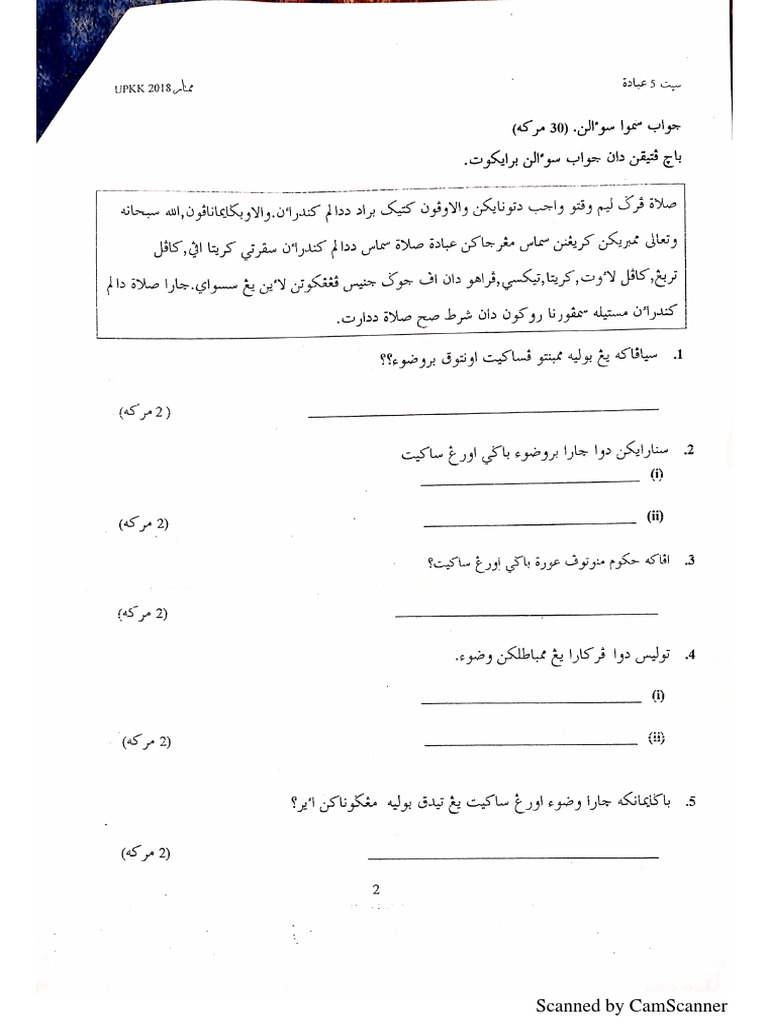 سيت 5 عبادة
UPKK 2018
جواب سموا سوءالن. (30 مركه)
باچ ڤتيقن دان جواب سوءالن برايكوت.
صلاة ڤرڬ ليم وقتو واجب دتونايكن والاوڤون كتيک براد ددالم كندراءن.والاوبڬايماناڤون,الله سبحانه
وتعالى ممبريكن كريڠنن سماس مڠرجاكن عبادة صلاة سماس ددالم كندراءن سڤرتي كريتا اڤي,كاڤل
تربڠ,كاڤل لاءوت,كريتا,تيكسي,ڤراهو دان اف جوڬ جنيس ڤڠڠكوتن لاءين يڠ سسواي.جارا صلاة دالم
كندراءن مستيله سمڤورنا روكون دان شرط صح صلاة ددارت.
1. سياڤاكه يڠ بوليه ممبنتو ڤساكيت اونتوق بروضوء؟؟
(2 مركه)
2. سنارايكن دوا جارا بروضوء باڬي اورڠ ساكيت
(i)
(ii)
(2 مركه)
3. اڤاكه حكوم منوتوڤ عورة باڬي اورڠ ساكيت؟
(2 مركه)
4. توليس دوا ڤركارا يڠ ممباطلكن وضوء.
(i)
(ii)
(2 مركه)
5. باڬايمانكه جارا وضوء اورڠ ساكيت يڠ تيدق بوليه مڠڬوناكن اءير؟
(2 مركه)
2
Scanned by CamScanner